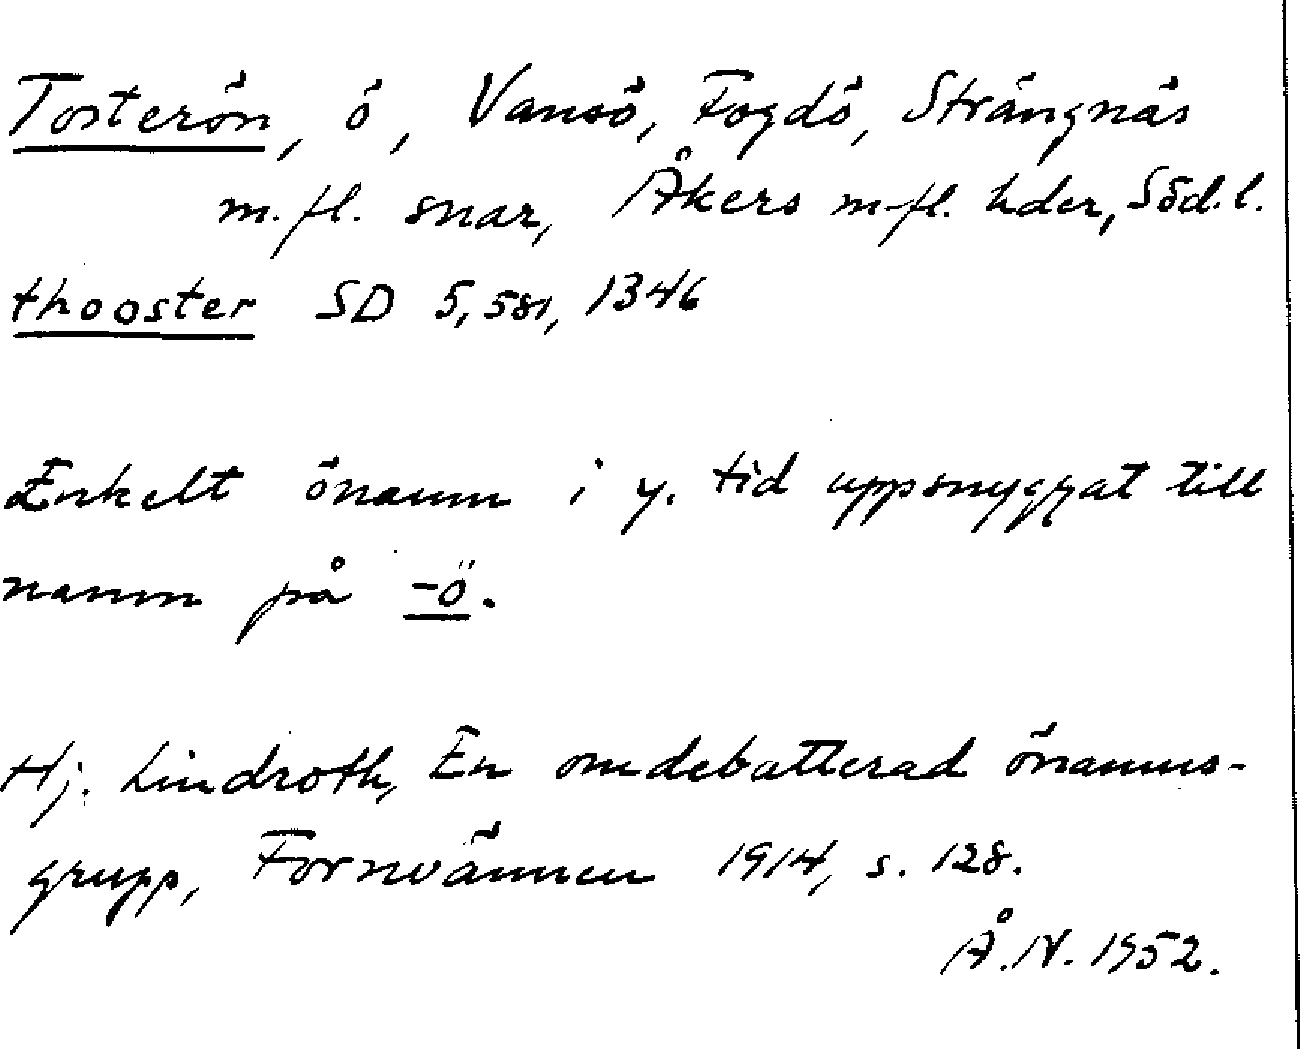 Tosterön, ö, Vansö, Fogdö, Strängnäs
m.fl. snar, Åkers m.fl. hder, Söd.l.
thooster SD 5,581, 1346
Enkelt önamn i y. tid uppsnyggat till
namn på -ö.
Hj. Lindroth, En omdebatterad önamns-
grupp, Fornvännen 1914, s. 128.
Å.N. 1952.